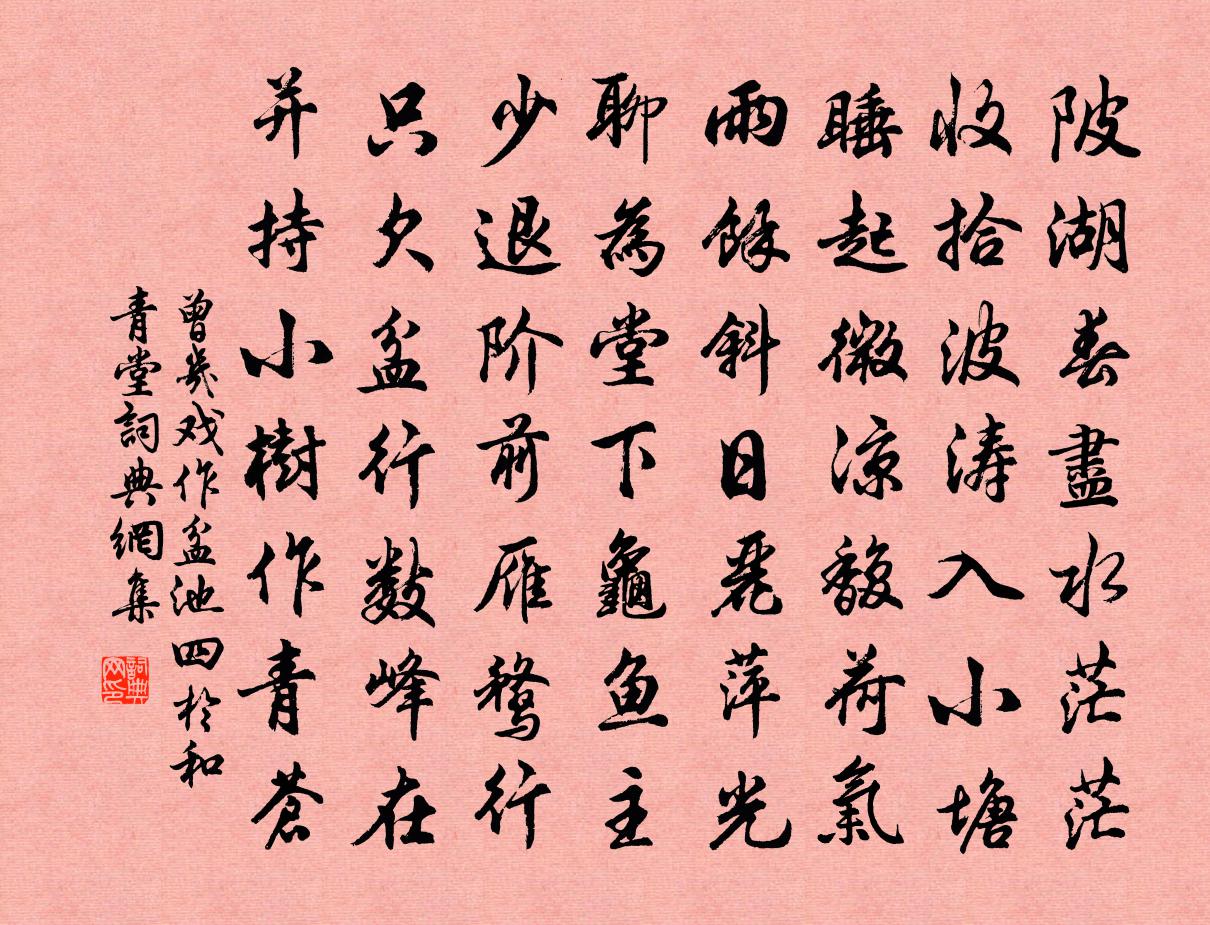 陂湖春盡水茫茫
收拾波涛入小塘
睡起微凉馥荷氣
雨餘斜日麗萍光
聊為堂下龜魚主
少退阶前雁鶩行
只欠盆行數峰在
并持小樹作青蒼
曾幾戏作盆池四於和
青堂詞典網集
詞典网印